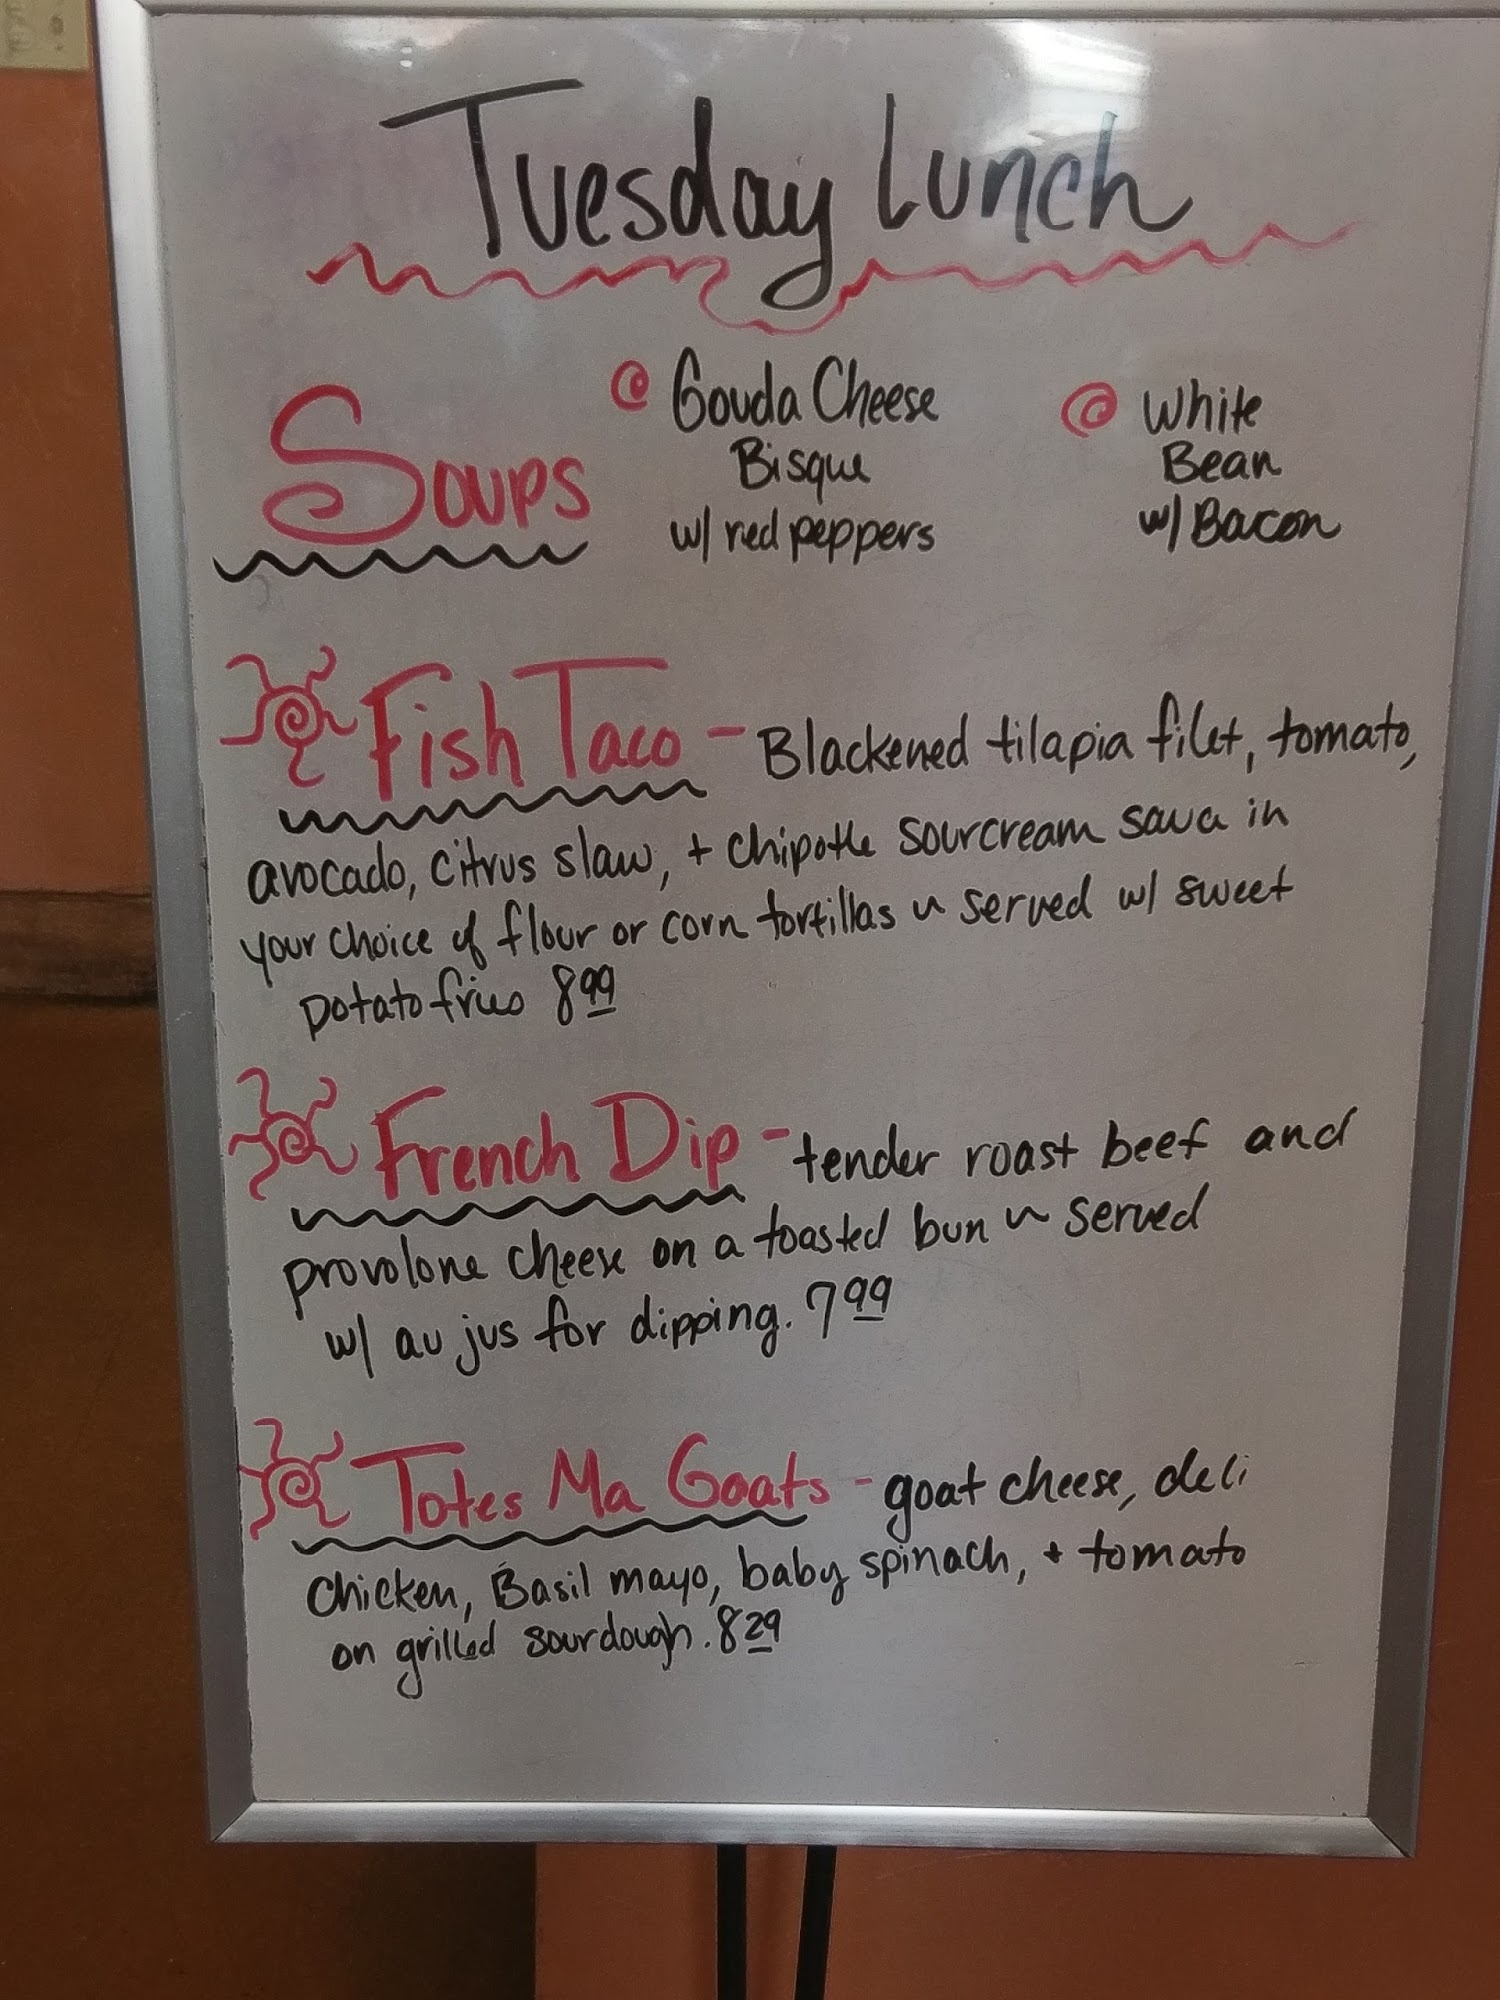 Tuesday Lunch
Soups
@ Gouda Cheese
Bisque
w/ red peppers
@ White
Bean
w/ Bacon
Fish Taco - Blackened tilapia filet, tomato,
avocado, citrus slaw, + chipotle sourcream sauce in
your choice of flour or corn tortillas ~ served w/ sweet
potato fries 8 99
French Dip - tender roast beef and
provolone cheese on a toasted bun ~ served
w/ au jus for dipping. 7 99
Totes Ma Goats - goat cheese, deli
Chicken, Basil mayo, baby spinach, + tomato
on grilled sourdough. 8 29